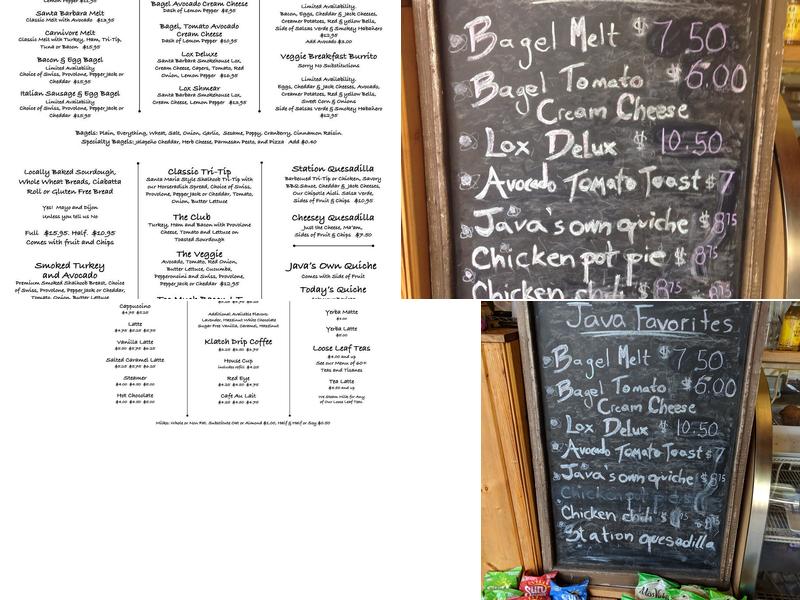 Santa Barbara Melt
Classic Melt with Avocado $12.95
Carnivore Melt
Classic Melt with Turkey, Ham, Tri-Tip,
Tuna or Bacon $15.95
Bacon & Egg Bagel
Limited Availability
Choice of Swiss, Provolone, Pepper Jack or
Cheddar $15.95
Italian Sausage & Egg Bagel
Limited Availability
Choice of Swiss, Provolone, Pepper Jack or
Cheddar $15.95
Bagel Avocado Cream Cheese
Dash of Lemon Pepper $9.95
Bagel, Tomato Avocado
Cream Cheese
Dash of Lemon Pepper $10.95
Lox Deluxe
Santa Barbara Smokehouse Lox,
Cream Cheese, Capers, Tomato, Red
Onion, Lemon Pepper $16.95
Lox Shmear
Santa Barbara Smokehouse Lox,
Cream Cheese, Lemon Pepper $13.95
Limited Availability.
Bacon, Eggs, Cheddar & Jack Cheeses,
Creamer Potatoes, Red & yellow Bells,
Side of Salsas Verde & Smokey Habanero
$12.95
Add Avocado $2.00
Veggie Breakfast Burrito
Sorry No Substitutions
Limited Availability.
Eggs, Cheddar & Jack Cheeses,
Avocado, Creamer Potatoes, Red & yellow Bells,
Sweet Corn & Onions
Side of Salsas Verde & Smokey Habanero
$12.95
Bagels: Plain, Everything, Wheat, Salt, Onion, Garlic, Sesame, Poppy, Cranberry, Cinnamon Raisin.
Specialty Bagels: Jalapeño Cheddar, Herb Cheese, Parmesan Pesto, and Pizza Add $0.60
Locally Baked Sourdough,
Whole Wheat Breads, Ciabatta
Roll or Gluten Free Bread
Yes! Mayo and Dijon
Unless you tell us No
Full $15.95. Half. $10.95
Comes with fruit and Chips
Smoked Turkey
and Avocado
Premium Smoked Shaihoob Breast, Choice
of Swiss, Provolone, Pepper Jack or Cheddar,
Tomato, Onion, Butter Lettuce
Classic Tri-Tip
Santa Maria Style Shalhoob Tri-Tip with
our Horseradish Spread, Choice of Swiss,
Provolone, Pepper Jack or Cheddar, Tomato,
Onion, Butter Lettuce
The Club
Turkey, Ham and Bacon with Provolone
Cheese, Tomato and Lettuce on
Toasted Sourdough
The Veggie
Avocado, Tomato, Red Onion,
Butter Lettuce, Cucumba,
Pepperoncini and Swiss, Provolone,
Pepper Jack or Cheddar
Station Quesadilla
Barbecued Tri-Tip or Chicken, Savory
BBQ Sauce, Cheddar & Jack Cheeses,
Our Chipotle Aioli. Salsa Verde,
Sides of Fruit & Chips $10.95
Cheesey Quesadilla
Just the Cheese, Ma'am,
Sides of Fruit & Chips $7.50
Java's Own Quiche
Comes with Side of Fruit
Today's Quiche
Cappuccino
Latte
Vanilla Latte
Salted Caramel Latte
Steamer
Hot Chocolate
Additional Available Flavors:
Lavender, Hazelnut White Chocolate
Sugar Free Vanilla, Caramel, Hazelnut
Klatch Drip Coffee
House Cup
Includes refill
Red Eye
Cafe Au Lait
Yerba Matte
Yerba Latte
Loose Leaf Teas
$4.00 and up
See our Menu of 60+
Teas and Tisanes
Tea Latte
We Steam Milk for Any
of Our Loose Leaf Teas
Milks: Whole or Non Fat. Substitute Oat or Almond $1.00, Half & Half or Soy $0.50
Bagel Melt $7.50.
Bagel Tomato $6.00
Cream Cheese
Lox Delux $10.50
Avocado Tomato Toast $7
Java's own quiche $8.75
Chicken pot pie $8.75
Chicken chili $8.75
Java Favorites
Bagel Melt $7.50.
Bagel Tomato $6.00
Cream Cheese
Lox Delux $10.50
Avocado Tomato Toast $7
Java's own quiche $8.75
Chicken pot pie
Chicken chili
Station quesadilla